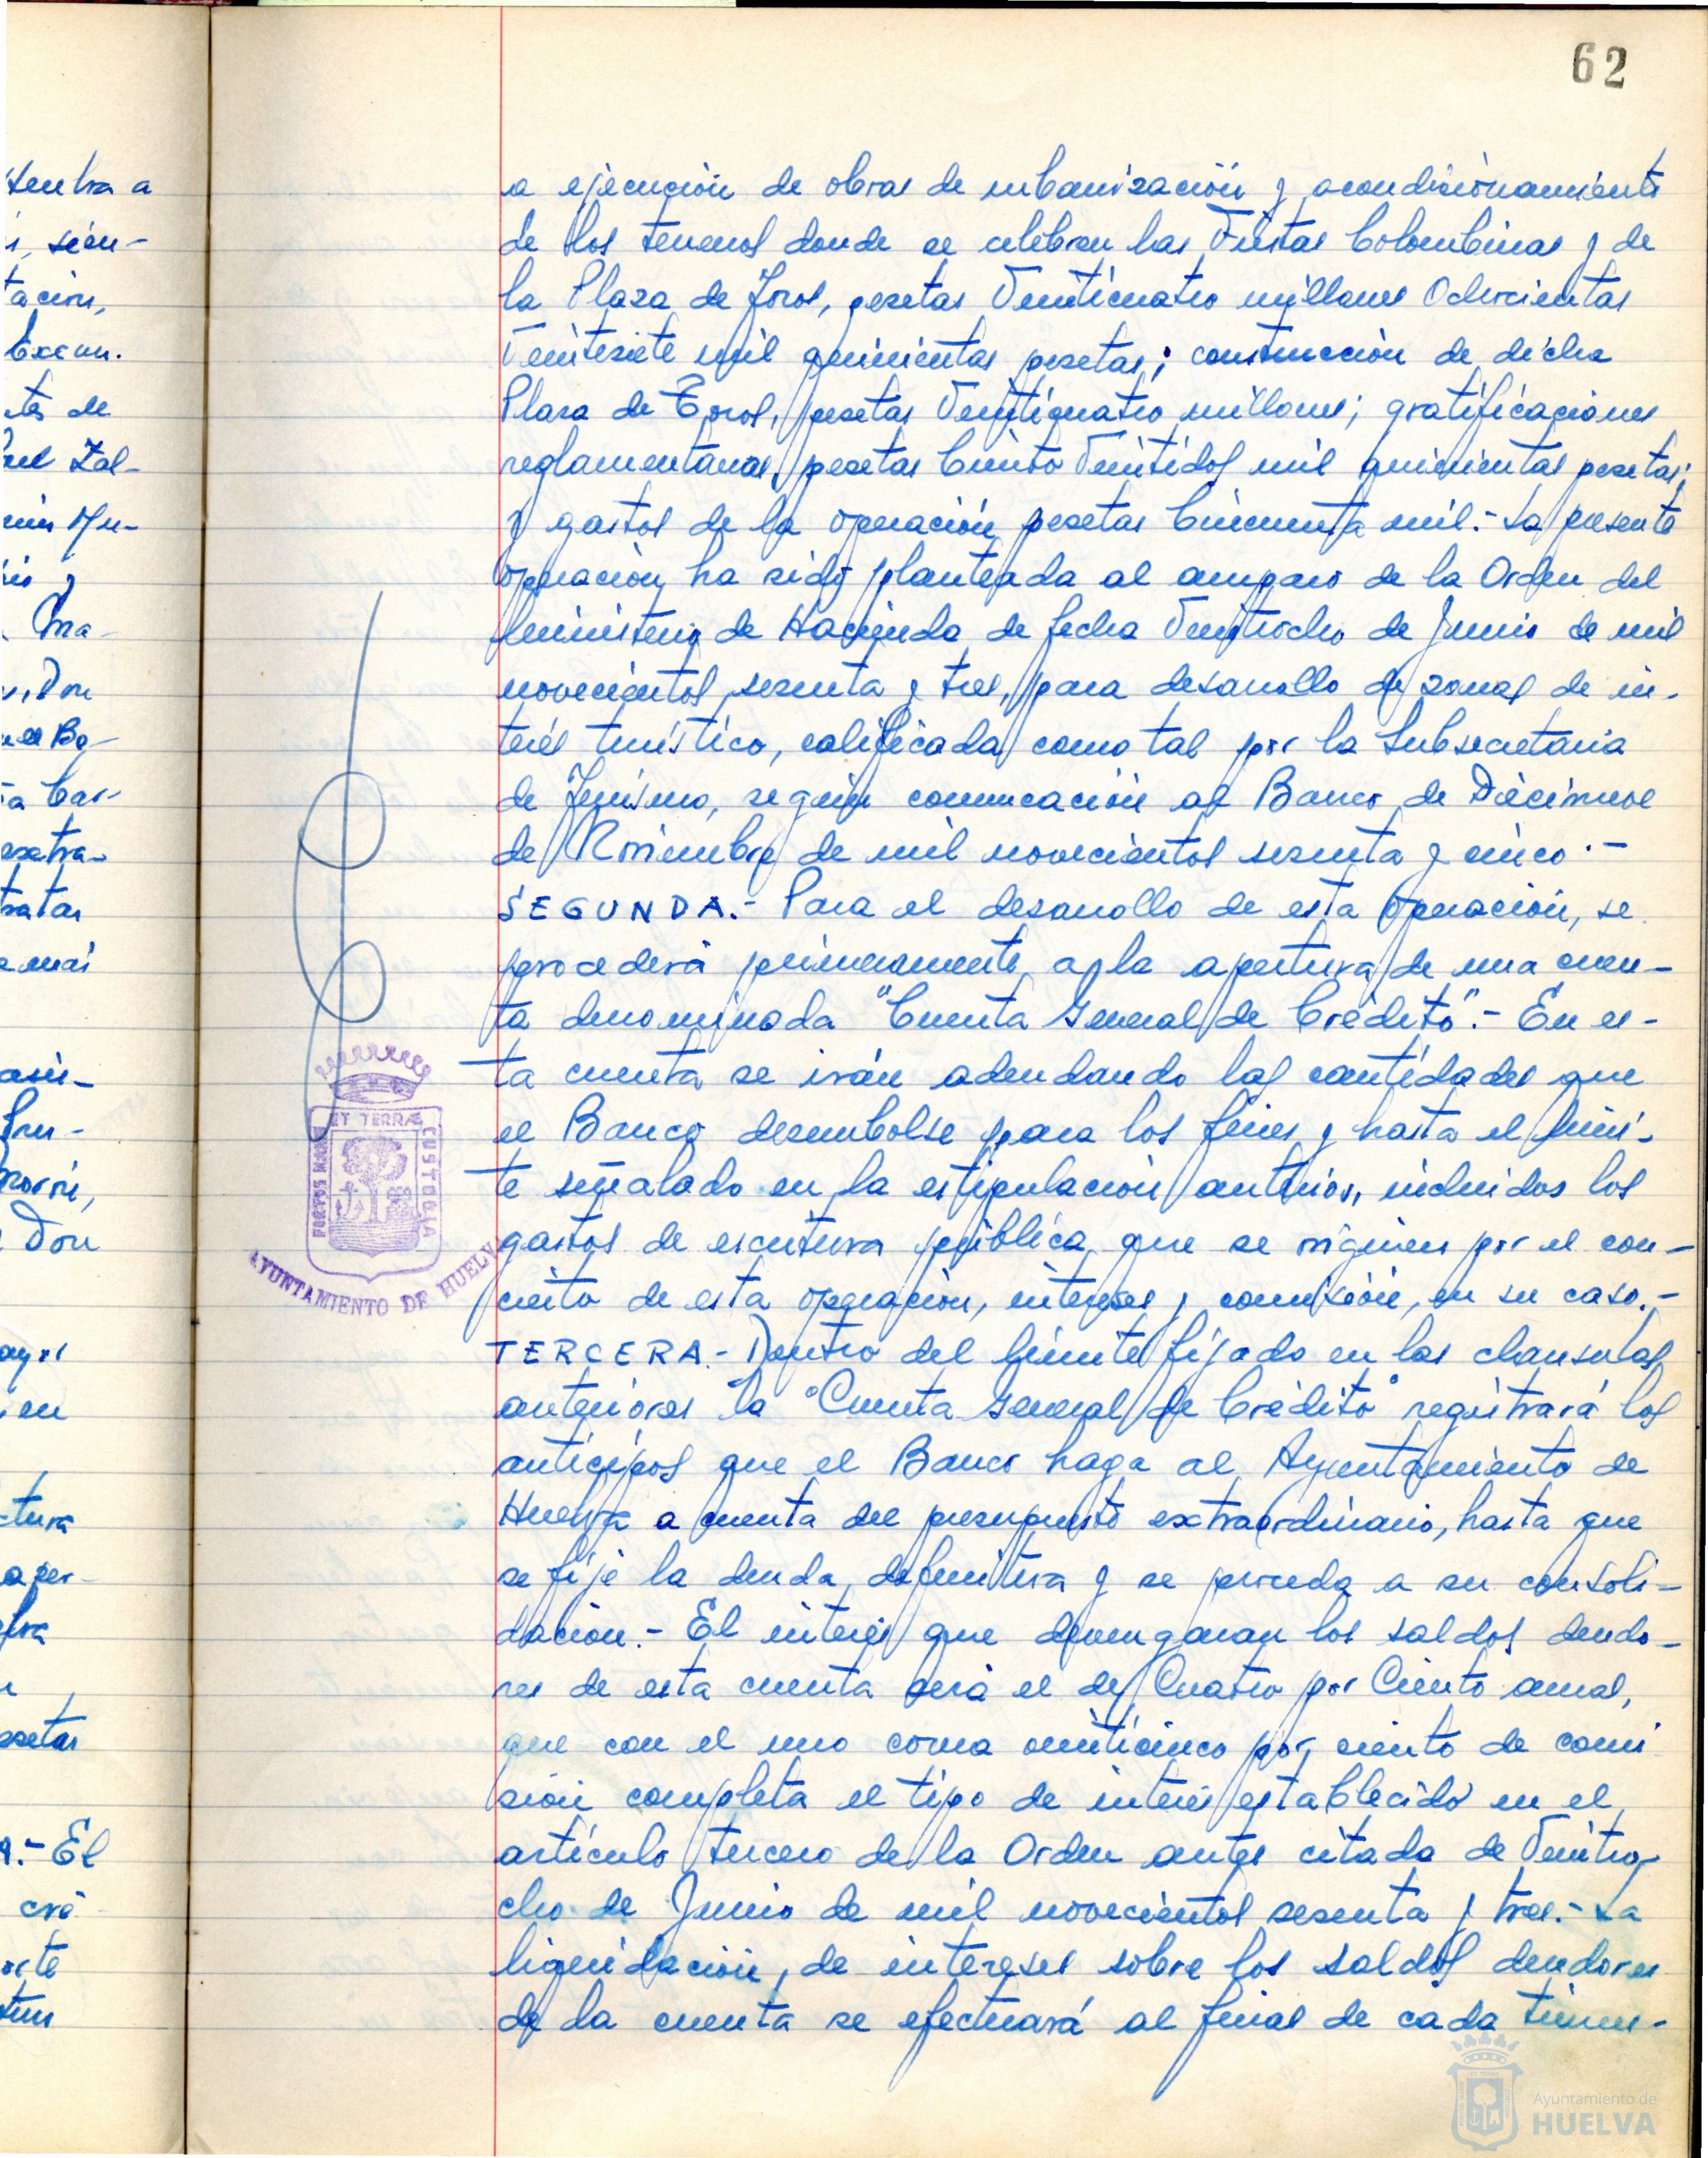 62
a ejecución de obras de urbanización y acondicionamiento
de los terrenos donde se celebran las Fiestas Colombinas y de
la Plaza de Toros, pesetas Veinticuatro millones Ochocientas
Veintisiete mil quinientas pesetas; construcción de dicha
Plaza de Toros, pesetas Veinticuatro millones; gratificaciones
reglamentarias, pesetas Ciento Veintidos mil quinientas pesetas;
y gastos de la operación pesetas Cincuenta mil.- La presente
operación ha sido planteada al amparo de la Orden del
Ministerio de Hacienda de fecha Veintiocho de Junio de mil
novecientos sesenta y tres, para desarrollo de zonas de in-
terés turístico, calificada como tal por la Subsecretaria
de Turismo, según comunicación al Banco de Diecinueve
de Noviembre de mil novecientos sesenta y cinco.-
SEGUNDA.- Para el desarrollo de esta operación, se
procederá primeramente a la apertura de una cuen-
ta denominada "Cuenta General de Crédito".- En es-
ta cuenta se irán adeudando las cantidades que
el Banco desembolse para los fines y hasta el lími-
te señalado en la estipulación anterior, incluidos los
gastos de escritura pública que se originen por el con-
cierto de esta operación, intereses y comisión, en su caso.-
TERCERA.- Dentro del límite fijado en las clausulas
anteriores la "Cuenta General de Crédito" registrará los
anticipos que el Banco haga al Ayuntamiento de
Huelva a cuenta del presupuesto extraordinario, hasta que
se fije la deuda definitiva y se proceda a su consoli-
dación.- El interés que devengaran los saldos deudo-
res de esta cuenta será el de Cuatro por Ciento anual,
que con el uno coma veinticinco por ciento de comi
sión completa el tipo de interés establecido en el
artículo tercero de la Orden antes citada de Veintio-
cho de Junio de mil novecientos sesenta y tres.- La
liquidación de intereses sobre los saldos deudores
de la cuenta se efectuará al final de cada trimes-
PORTUS MARIS ET TERRÆ CUSTODIA
AYUNTAMIENTO DE HUELV
sientación,
tación,
Excm.
tes de
Zal-
Mu-
Ma-
Don
Bo-
Car-
tratar
Don
en
ctura
aper-
pesetas
A.- El
cré
Ayuntamiento de
HUELVA